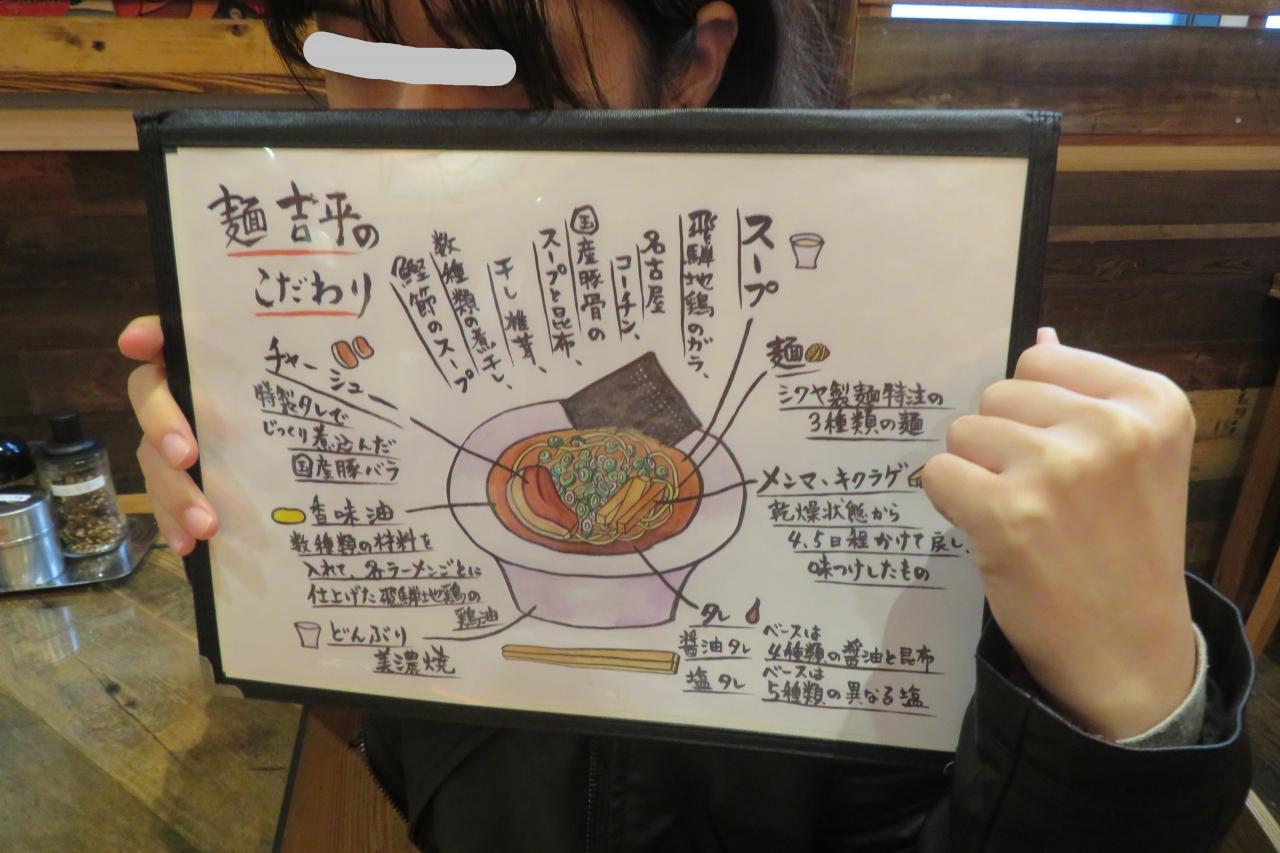 麺 吉平の
こだわり
スープ
飛騨地鶏のガラ、
名古屋
コーチン、
国産豚骨の
スープと昆布、
干し椎茸、
数種類の煮干し、
鰹節のスープ
チャーシュー
特製タレで
じっくり煮込んだ
国産豚バラ
香味油
数種類の材料を
入れて、各ラーメンごとに
仕上げた飛騨地鶏の
鶏油
どんぶり
美濃焼
麺
シクヤ製麺特注の
3種類の麺
メンマ、キクラゲ
乾燥状態から
4、5日程かけて戻し、
味つけしたもの
タレ
醤油タレ ベースは
4種類の醤油と昆布
塩タレ ベースは
5種類の異なる塩